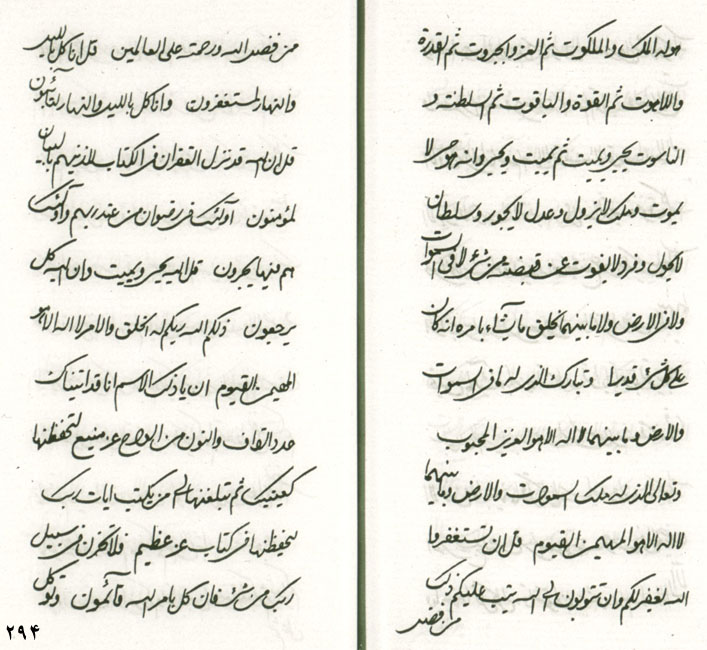 هو له الملك والملكوت ثم العز والجبروت ثم القدرة
واللاهوت ثم القوة والياقوت ثم السلطنة و
الناسوت يحيي ويميت ثم يميت ويحيي وانه هو حي لا
يموت وملك لا يزول وعدل لا يجور وسلطان
لا يحول وفرد لا يفوت عن قبضته من شئ لا في السموات
ولا في الارض ولا ما بينهما يخلق ما يشاء بامره انه كان
على كل شئ قديرا وتبارك الذي له ما في السموات
والارض وما بينهما لا اله الا هو العزيز المحبوب
وتعالى الذي له ملك السموات والارض وما بينهما
لا اله الا هو المهيمن القيوم قل ان تستغفروا
الله ليغفر لكم وان تتوبون الى الله يتيب عليكم ذلك
من فضل
من فضل الله ورحمته على العالمين قل انا كل بالليل
والنهار لمستغفرون وانا كل بالليل والنهار لتائبون
قل ان الله قد نزل الغفران في الكتاب للذينهم بالبيان
لمؤمنون اولئك في رضوان من عند ربهم واولئك
هم فيها يحبرون قل الله يحيي ويميت وان اليه كل
يرجعون ذلكم الله ربكم له الخلق والامر لا اله الا هو
المهيمن القيوم ان يا ذلك الاسم انا قد اتيناك
عدد الكاف والنون من الواح عز منيع لتحفظنها
كعينيك ثم تبلغنها الى من يكتب ايات ربك
لتحفظنها في كتاب عز عظيم فلا تحزن في سبيل
ربك من شئ فان كل بامر الله قائمون وتوكل
۲۹۴